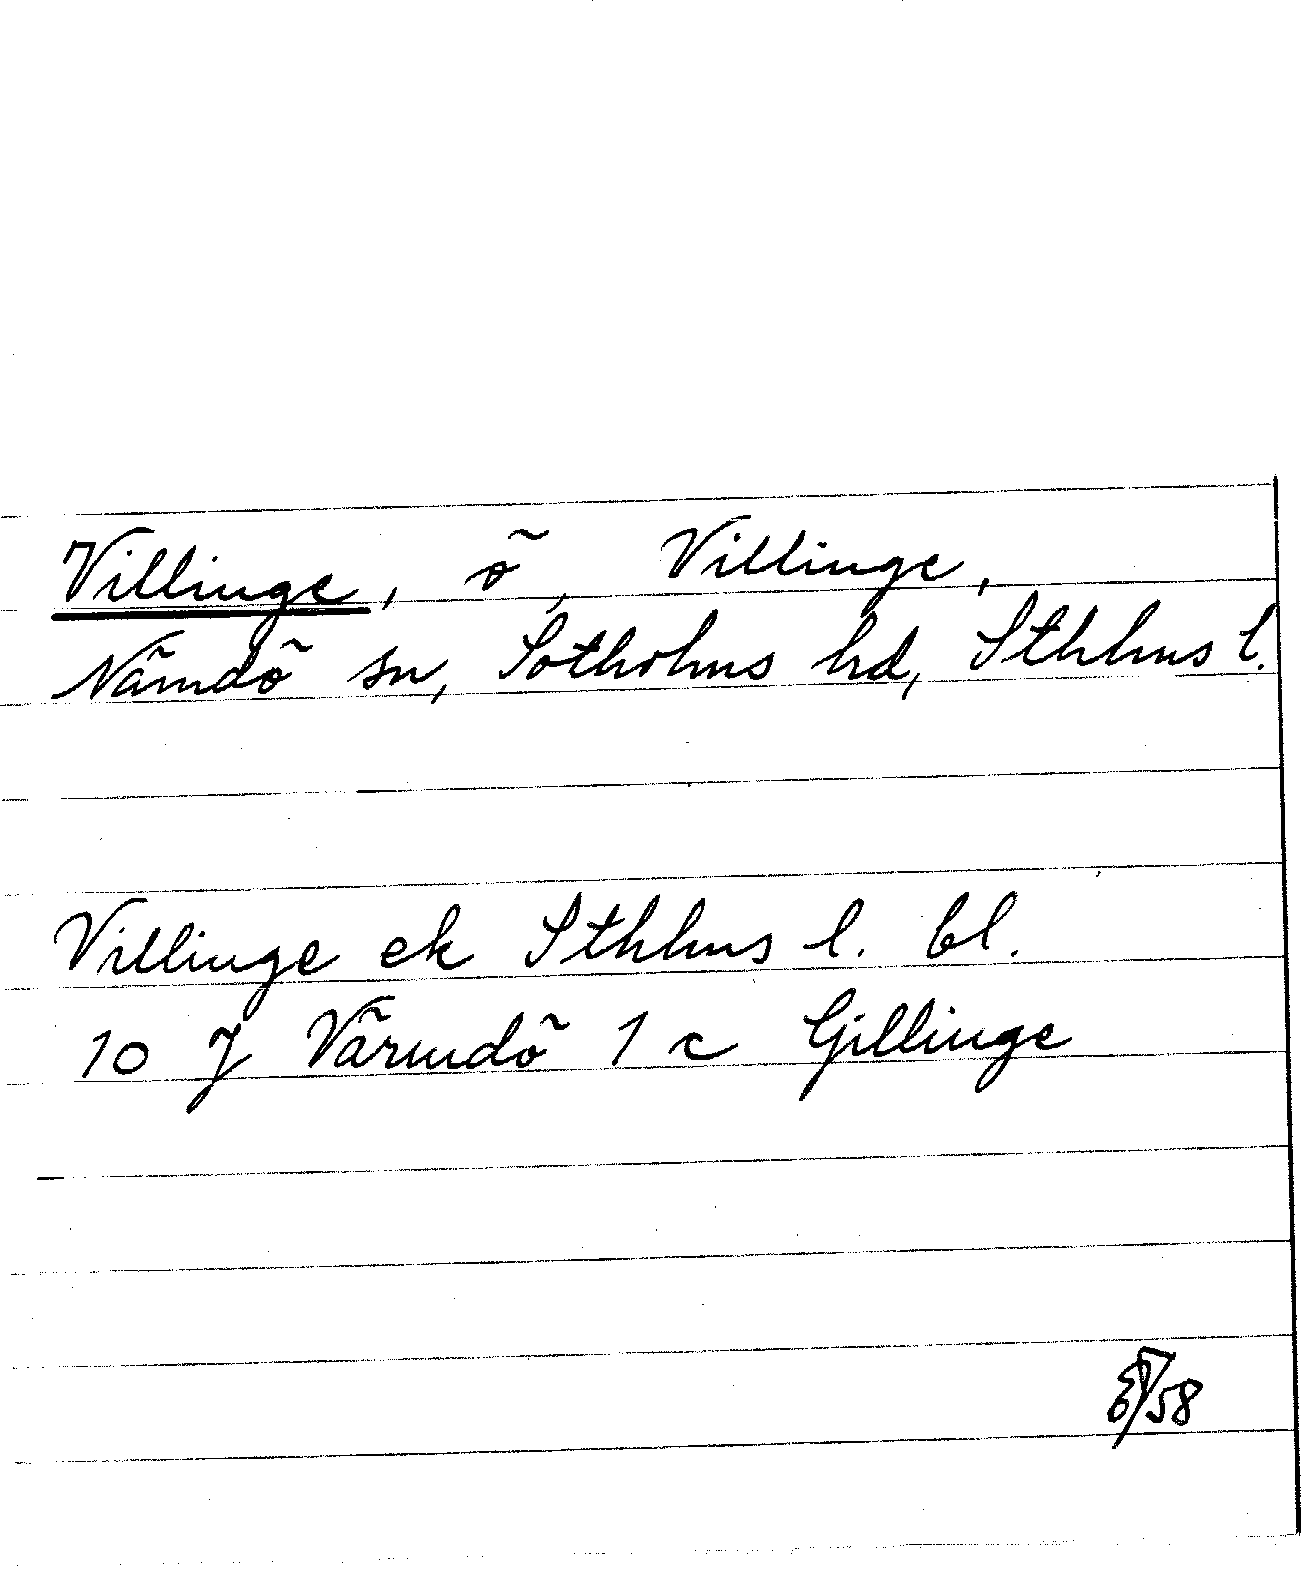 Villinge, ö, Villinge,
Nämdö sn, Sotholms hd, Sthlms l.
Villinge ek Sthlms l. bl.
10 J Värmdö 1 c Gillinge
58